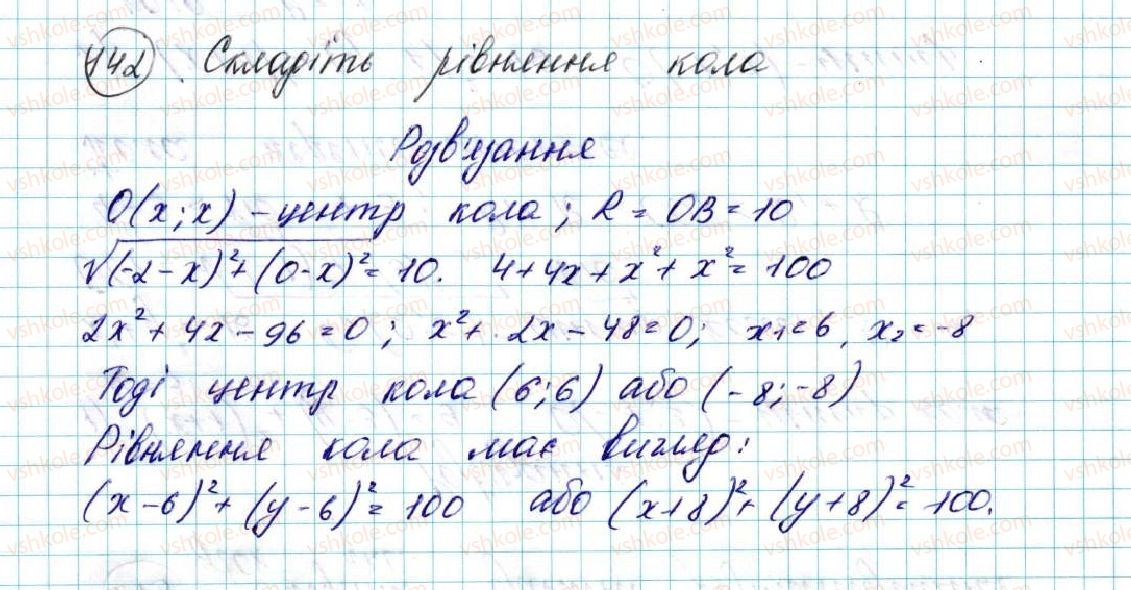 442. Складіть рівняння кола
Розв'язання
O(x; x) - центр кола; R = OB = 10
√(-2-x)²+(0-x)² = 10. 4+4x+x²+x² = 100
2x²+4x-96=0; x²+2x-48=0; x₁=6, x₂=-8
Тоді центр кола (6;6) або (-8;-8)
Рівняння кола має вигляд:
(x-6)²+(y-6)²=100 або (x+8)²+(y+8)²=100.